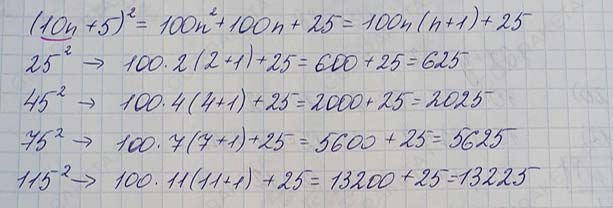 (10n+5)² = 100n² + 100n + 25 = 100n(n+1) + 25
25² → 100·2(2+1)+25 = 600+25 = 625
45² → 100·4(4+1)+25 = 2000+25 = 2025
75² → 100·7(7+1)+25 = 5600+25 = 5625
115² → 100·11(11+1)+25 = 13200+25 = 13225